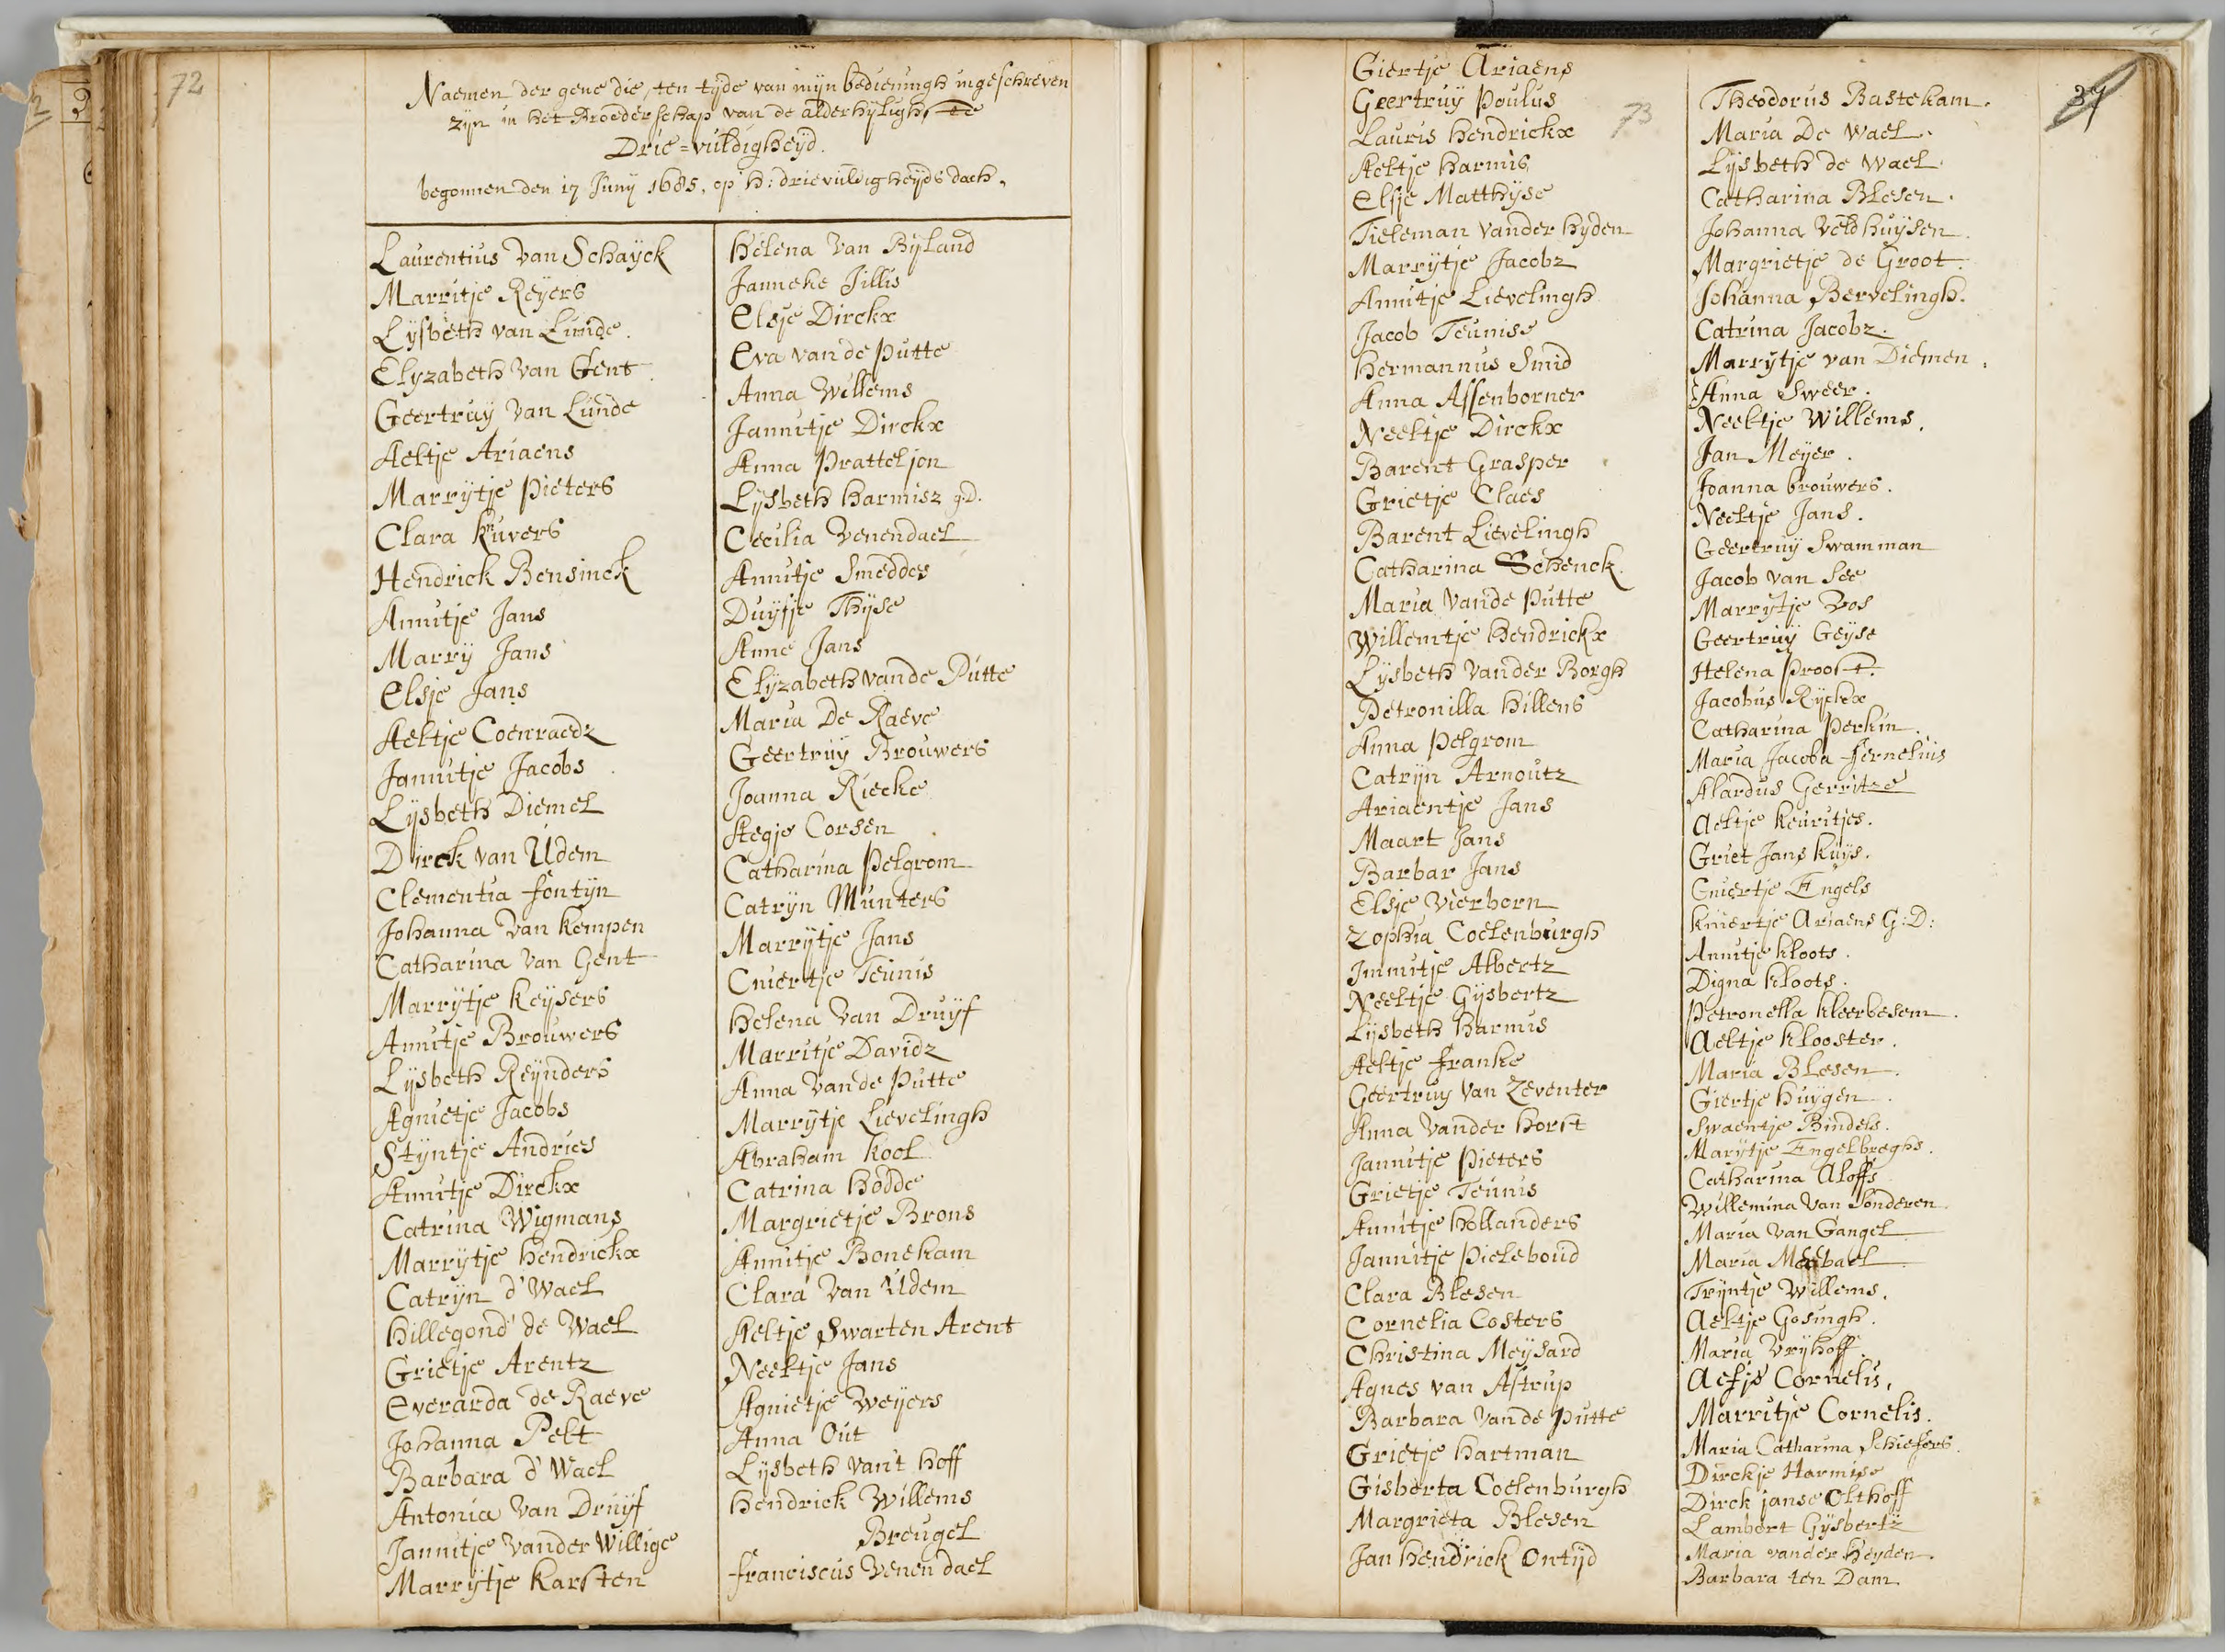 72
Naemen der gene die, ten tyde van mijn bedieningh ingeschreven
zijn in het Broederschap van de alderhyligh,ste
Drie=vuldigheyd.
begonnen den 17 Junij 1685, op h: drievuldigheyds dach.
Laurentius van Schayck
Marritje Reyers
Lysbeth van Lunde.
Elyzabeth van Gent
Geertruy van Lunde
Aeltje Ariaens
Marrytje Pieters
Clara Kuvers
Hendrick Bensinck
Annitje Jans
Marry Jans
Elsje Jans
Aeltje Coenraedz
Jannitje Jacobs
Lysbeth Diemel
Dirck van Udem
Clementia fontijn
Johanna van Kempen
Catharina van Gent
Marrytje Keysers
Annitje Brouwers
Lysbeth Reynders
Agnietje Jacobs
Styntje Andries
Annitje Dirckx
Catrina Wigmans
Marrytje Hendrickx
Catryn d'Wael
Hillegond de Wael
Grietje Arentz
Everarda de Raeve
Johanna Pelt
Barbara d'Wael
Antonia van Druyf
Jannitje vander Willige
Marrytje Karsten
Helena van Byland
Janneke Jillis
Elsje Dirckx
Eva van de Putte
Anna Willems
Jannitje Dirckx
Anna Pratteljon
Lysbeth Harmisz g.D.
Cecilia Venendael
Annitje Smeddes
Duyfje Thyse
Anne Jans
Elyzabeth vande Putte
Maria De Raeve
Geertruy Brouwers
Joanna Riecke
Aegje Corsen
Catharina Pelgrom
Catryn Munters
Marrytje Jans
Cniertje Teunis
Helena van Druyf
Marritje Davidz
Anna vande Putte
Marrytje Lievelingh
Abraham Kool
Catrina Hodde
Margrietje Brons
Annitje Bonekam
Clara van Udem
Aeltje Swarten Arent
Neeltje Jans
Agnietje Weyers
Anna Out
Lysbeth van't Hoff
Hendrick Willems
Breugel
franciscus Venendael
Giertje Ariaens
Geertruy Poulus
Lauris Hendrickx
73
Aeltje Harmis
Elsje Matthyse
Tieleman vander Hyden
Marrytje Jacobz
Annitje Lievelingh
Jacob Teunise
Hermannus Smid
Anna Assenborner
Neeltje Dirckx
Barent Grasper
Grietje Claes
Barent Lievelingh
Catharina Schenck
Maria vande Putte
Willemtje Hendrickx
Lysbeth vander Borgh
Petronilla Hillens
Anna Pelgrom
Catryn Arnoutz
Ariaentje Jans
Maart Jans
Barbar Jans
Elsje Vierborn
Zophia Coelenburgh
Immitje Albertz
Neeltje Gysbertz
Lysbeth Harmis
Aeltje franke
Geertruy van Zeventer
Anna vander Horst
Jannitje Pieters
Grietje Teunis
Annitje Hollanders
Jannitje Pieleboud
Clara Blesen
Cornelia Costers
Christina Meysard
Agnes van Astrup
Barbara vande Putte
Grietje Hartman
Gisberta Coelenburgh
Margrieta Blesen
Jan Hendrick Ontyd
39
Theodorus Bastekam.
Maria De Wael.
Lysbeth de Wael.
Catharina Blesen.
Johanna Veldhuysen.
Margrietje de Groot.
Johanna Bervelingh.
Catrina Jacobz.
Marrytje van Diemen.
Anna Sweer.
Neeltje Willems.
Jan Meyer.
Joanna brouwers.
Neeltje Jans.
Geertruy Swamman
Jacob van See
Marrytje Vos
Geertruy Geyse
Helena Proost.
Jacobus Ryckx
Catharina Perkin.
Maria Jacoba fernelius
Alardus Gerritze
Aeltje Keuritjes.
Griet Jans Kuys.
Cniertje Engels
Kniertje Ariaens G:D:
Annitje Kloots.
Digna Kloots.
Petronella Kleerbesem.
Aeltje Klooster.
Maria Blesen.
Giertje Huygen.
Swaentje Bindels.
Marytje Engelbreghs.
Catharina Aloffs
Willemina van Sonderen.
Maria van Gangel
Maria Meebael
Tryntje Willems.
Aeltje Gosingh.
Maria Vryhoff.
Aefje Cornelis.
Marritje Cornelis.
Maria Catharina Schiefers.
Dirckje Harmise
Dirck janse Olthoff
Lambert Gysbertz
Maria vander Heyden.
Barbara ten Dam.